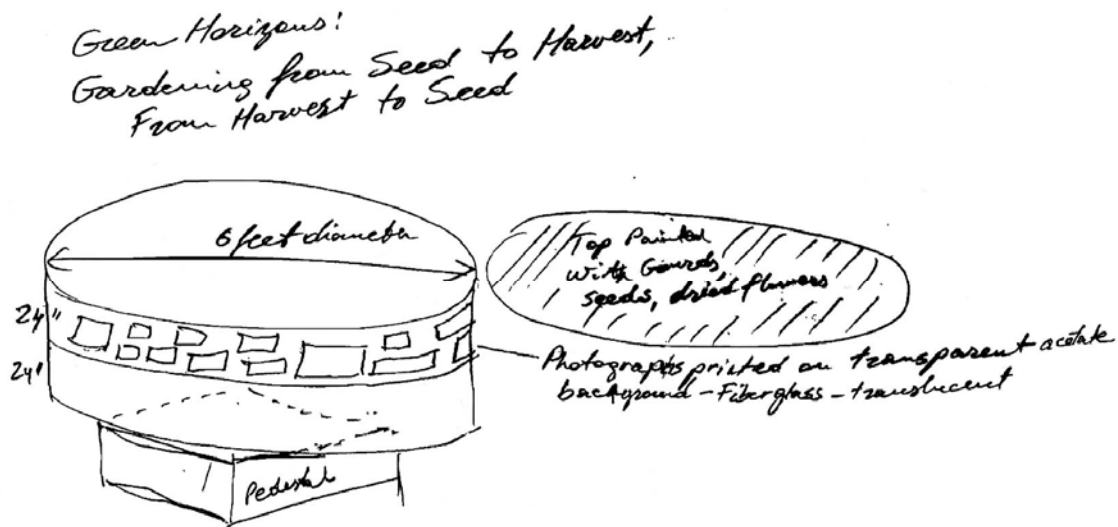 Green Horizons:
Gardening from Seed to Harvest,
From Harvest to Seed
6 feet diameter
Top Painted
with Gourds
seeds, dried flowers
24"
24"
Photographs printed on transparent acetate
background - Fiberglass - translucent
Pedestal